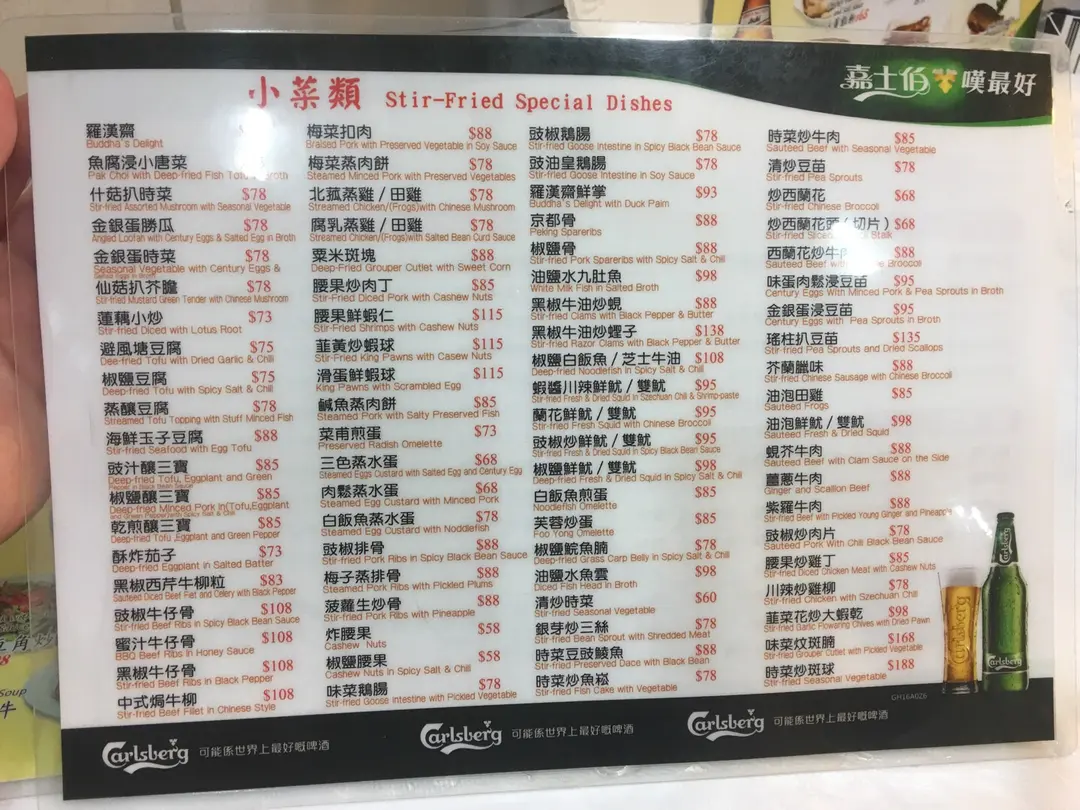 嘉士伯 嘆最好
小菜類 Stir-Fried Special Dishes
羅漢齋
Buddha's Delight
魚腐浸小唐菜
Pak Choi with Deep-fried Fish Tofu Broth
什菇扒時菜 $78
Stir-fried Assorted Mushroom with Seasonal Vegetable
金銀蛋勝瓜 $78
Angled Loofah with Century Eggs & Salted Egg in Broth
金銀蛋時菜 $78
Seasonal Vegetable with Century Eggs &
仙菇扒芥膽 $78
Stir-fried Mustard Green Tender with Chinese Mushroom
蓮藕小炒 $73
Stir-fried Diced with Lotus Root
避風塘豆腐 $75
Dee-fried Tofu with Dried Garlic & Chili
椒鹽豆腐 $75
Deep-fried Tofu with Spicy Salt & Chili
蒸釀豆腐 $78
Streamed Tofu Topping with Stuff Minced Fish
海鮮玉子豆腐 $88
Stir-fried Seafood with Egg Tofu
豉汁釀三寶 $85
Deep-fried Tofu, Eggplant and Green
Pepper in Black Bean Sauce
椒鹽釀三寶 $85
Deep-fried Minced Pork in(Tofu,Eggplant
and Green Pepper)with Spicy Salt & Chili
乾煎釀三寶 $85
Deep-fried Tofu ,Eggplant and Green Pepper
酥炸茄子 $73
Deep-fried Eggplant in Salted Batter
黑椒西芹牛柳粒 $83
Sauteed Diced Beef Filet and Celery with Black Pepper
豉椒牛仔骨 $108
Stir-fried Beef Ribs in Spicy Black Bean Sauce
蜜汁牛仔骨 $108
BBQ Beef Ribs in Honey Sauce
黑椒牛仔骨 $108
Stir-fried Beef Ribs in Black Pepper
中式焗牛柳 $108
Stir-fried Beef Fillet in Chinese Style
梅菜扣肉 $88
Braised Pork with Preserved Vegetable in Soy Sauce
梅菜蒸肉餅 $78
Steamed Minced Pork with Preserved Vegetables
北菰蒸雞 / 田雞 $78
Streamed Chicken/(Frogs)with Chinese Mushroom
腐乳蒸雞 / 田雞 $78
Streamed Chicken/(Frogs)with Salted Bean Curd Sauce
粟米斑塊 $88
Deep-Fried Grouper Cutlet with Sweet Corn
腰果炒肉丁 $85
Stir-Fried Diced Pork with Cashew Nuts
腰果鮮蝦仁 $115
Stir-Fried Shrimps with Cashew Nuts
韮黃炒蝦球 $115
Stir-Fried King Pawns with Casew Nuts
滑蛋鮮蝦球 $115
King Pawns with Scrambled Egg
鹹魚蒸肉餅 $85
Steamed Pork with Salty Preserved Fish
菜甫煎蛋 $73
Preserved Radish Omelette
三色蒸水蛋 $68
Steamed Eggs Custard with Salted Egg and Century Egg
肉鬆蒸水蛋 $68
Steamed Egg Custard with Minced Pork
白飯魚蒸水蛋 $78
Steamed Egg Custard with Noddlefish
豉椒排骨 $88
Steamed Pork Ribs in Spicy Black Bean Sauce
梅子蒸排骨 $88
Steamed Pork Ribs with Pickled Plums
菠蘿生炒骨 $88
Stir-fried Pork Ribs with Pineapple
炸腰果 $58
Cashew Nuts
椒鹽腰果 $58
Cashew Nuts in Spicy Salt & Chili
味菜鵝腸 $78
Stir-fried Goose Intestine with Pickled Vegetable
豉椒鵝腸 $78
Stir-fried Goose Intestine in Spicy Black Bean Sauce
豉油皇鵝腸 $78
Stir-fried Goose Intestine in Soy Sauce
羅漢齋鮮掌 $93
Buddha's Delight with Duck Palm
京都骨 $88
Peking Spareribs
椒鹽骨 $88
Stir-fried Pork Spareribs with Spicy Salt & Chili
油鹽水九肚魚 $98
White Milk Fish in Salted Broth
黑椒牛油炒蜆 $88
Stir-fried Clams with Black Pepper & Butter
黑椒牛油炒蟶子 $138
Stir-fried Razor Clams with Black Pepper & Butter
椒鹽白飯魚 / 芝士牛油 $108
Deep-fried Noodlefish in Spicy Salt & Chili
蝦醬川辣鮮魷 / 雙魷 $95
Stir-fried Fresh & Dried Squid in Szechuan Chili & Shrimp-paste
蘭花鮮魷 / 雙魷 $95
Stir-fried Fresh Squid with Chinese Broccoli
豉椒炒鮮魷 / 雙魷 $95
Stir-fried Fresh & Dried Squid in Spicy Black Bean Sauce
椒鹽鮮魷 / 雙魷 $98
Deep-fried Fresh & Dried Squid in Spicy Salt & Chili
白飯魚煎蛋 $85
Noodlefish Omelette
芙蓉炒蛋 $85
Foo Yong Omelette
椒鹽鯇魚腩 $78
Deep-fried Grass Carp Belly in Spicy Salt & Chili
油鹽水魚雲 $98
Diced Fish Head in Broth
清炒時菜 $60
Stir-fried Seasonal Vegetable
銀芽炒三絲 $78
Stir-fried Bean Sprout with Shredded Meat
時菜豆豉鯪魚 $88
Stir-fried Preserved Dace with Black Bean
時菜炒魚崧 $78
Stir-fried Fish Cake with Vegetable
時菜炒牛肉 $85
Sauteed Beef with Seasonal Vegetable
清炒豆苗 $78
Stir-fried Pea Sprouts
炒西蘭花 $68
Stir-fried Chinese Broccoli
炒西蘭花頭(切片) $68
Stir-fried Slice Stalk
西蘭花炒牛 $88
Sauteed Beef with Broccoli
味蛋肉鬆浸豆苗 $95
Century Eggs with Minced Pork & Pea Sprouts in Broth
金銀蛋浸豆苗 $95
Century Eggs with Pea Sprouts in Broth
瑤柱扒豆苗 $135
Stir-fried Pea Sprouts and Dried Scallops
芥蘭臘味 $88
Stir-fried Chinese Sausage with Chinese Broccoli
油泡田雞 $85
Sauteed Frogs
油泡鮮魷 / 雙魷 $98
Sauteed Fresh & Dried Squid
蜆芥牛肉 $88
Sauteed Beef with Clam Sauce on the Side
薑蔥牛肉 $88
Ginger and Scallion Beef
紫羅牛肉 $88
Stir-fried Beef with Pickled Young Ginger and Pineapple
豉椒炒肉片 $78
Sauteed Pork with Chili Black Bean Sauce
腰果炒雞丁 $85
Stir-fried Diced Chicken Meat with Cashew Nuts
川辣炒雞柳 $78
Stir-fried Chicken with Szechuan Chili
韮菜花炒大蝦乾 $98
Stir-fried Garlic Flowering Chives with Dried Pawn
味菜炆斑腩 $168
Stir-fried Grouper Cutlet with Pickled Vegetable
時菜炒斑球 $188
Stir-fried Seasonal Vegetable
GH16A026
Carlsberg 可能係世界上最好嘅啤酒
Carlsberg 可能係世界上最好嘅啤酒
Carlsberg 可能係世界上最好嘅啤酒
Carlsberg
Carlsberg
角炒
Soup
牛